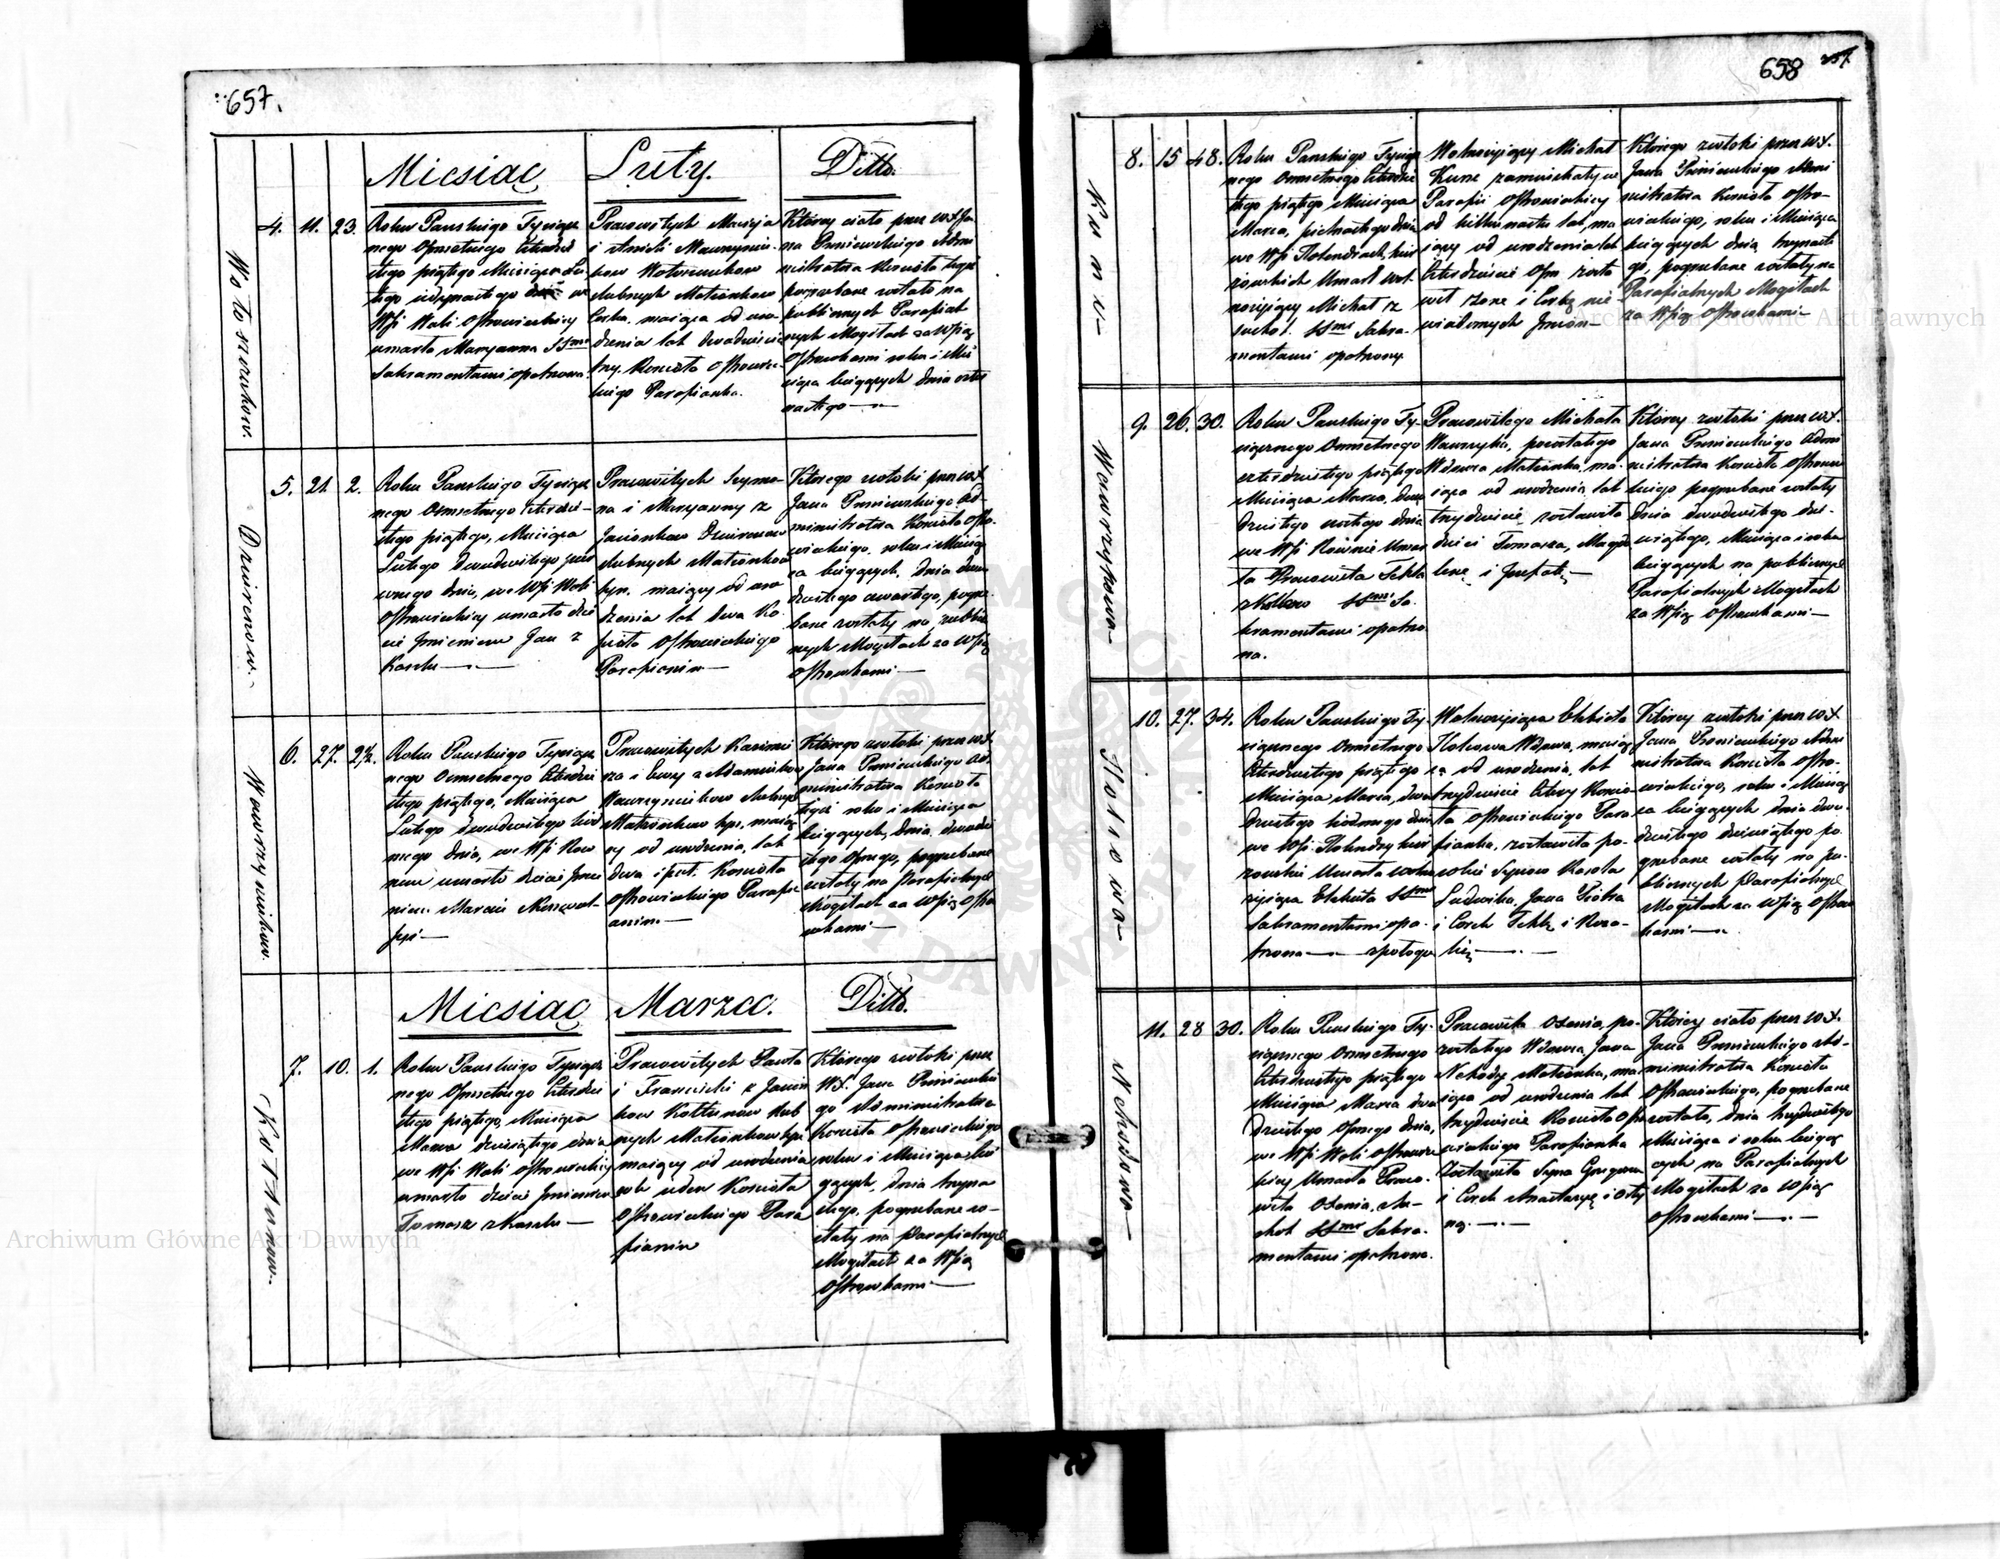 657.
Miesiąc Luty. Ditto.
Wołoszczuków.
4. 11. 23.
Roku Pańskiego Tysiącz
nego Osmsetnego Czterdzie
stego piątego Miesiąca Lu
tego jedynastego dnia we
Wsi Woli Ostrowieckiey
umarła Maryanna SSmi
Sakramentami opatrzona.
Pracowitych Macieja
ślubnych Małżonków
Córka, maiąca od uro
dzenia lat dwadzieścia
trzy. Kościoła Ostrowiec
kiego Parafianka.
Którey ciało przez WX Ja
na Administratora Kościoła tegoż
pogrzebane zostało na
publicznych Parafial
nych Mogiłach za Wsią
Ostrowkami roku i Mie
siąca bieżących dnia czter
nastego
Dzwirenow.
5. 21. 2.
Roku Pańskiego Tysiącz
nego Osmsetnego Czterdzie
stego piątego, Miesiąca
Lutego dwudziestego pier
wszego dnia, we Wsi Woli
Ostrowieckiey umarło dzie
cie Imieniem Jan z
Kaszlu
Pracowitych Szymo
na i Maryanny z
ślubnych Małżonków
Syn. maiący od uro
dzenia lat dwa Ko
ścioła Ostrowieckiego
Parafianin
Którego zwłoki przez WX
Jana Ad
ministratora Kościoła Ostro
wieckiego, roku i Miesią
ca bieżących, dnia dwu
dziestego czwartego, pogrze
bane zostały na publicz
nych Mogiłach za Wsią
Ostrowkami
Wawrzyniuków.
6. 27. 2½.
Roku Pańskiego Tysiącz
nego Osmsetnego Czterdzie
stego piątego, Miesiąca
Lutego dwudziestego siód
mego dnia, we Wsi Row
nem umarło dziecie Imie
niem Marcin
Pracowitych Kazimie
rza i Ewy z Adamiuków
Wawrzyniuków ślubnych
Małżonków syn, maią
cy od urodzenia, lat
dwa i pół. Kościoła
Ostrowieckiego Parafi
anin.
Którego zwłoki przez WX
Jana Ad
ministratora Kościoła
tegoż roku i Miesiąca
bieżących, dnia dwudzie
stego osmego, pogrzebane
zostały na Parafialnych
Mogiłach za Wsią Ostro
wkami
Miesiąc Marzec. Ditto.
Kołtunow.
7. 10. 1.
Roku Pańskiego Tysiącz
nego Osmsetnego Czterdzie
stego piątego, Miesiąca
Marca dziesiątego dnia
we Wsi Woli Ostrowieckiey
umarło dziecie Imieniem
Tomasz z Kaszlu
Pracowitych Pawła
i Franciszki z Janiu
kow Kołtunow ślub
nych Małżonków syn
maiący od urodzenia
rok ieden Kościoła
Ostrowieckiego Para
fianin
Którego zwłoki przez
WX. Jana
go Administratora
Kościoła Ostrowieckiego
roku i Miesiąca bie
żących, dnia trzyna
stego, pogrzebane zo
stały na Parafialnych
Mogiłach za Wsią
Ostrowkami
658
Kunza
8. 15 48.
Roku Pańskiego Tysiącz
nego Osmsetnego Czterdzie
stego piątego Miesiąca
Marca, piętnastego dnia
we Wsi Holendrach
Umarł wol
noziący Michał z
Suchot. SSmi Sakra
mentami opatrzony.
Wolnoziący Michał
Kunz zamieszkały w
Parafii Ostrowieckiey
od kilkunastu lat, ma
iący od urodzenia lat
Czterdzieści Osm zosta
wił żonę i Córkę nie
wiadomych Imion
Którego zwłoki przez WX.
Jana Admi
nistratora Kościoła Ostro
wieckiego, roku i Miesiąca
bieżących dnia trzynaste
go, pogrzebane zostały na
Parafialnych Mogiłach
za Wsią Ostrowkami
Wawrzykowa
9. 26. 30.
Roku Pańskiego Ty
siącznego Osmsetnego
czterdziestego piątego
Miesiąca Marca, dwu
dziestego szóstego dnia
we Wsi Równie Umar
ła Pracowita Tekla
SSmi Sa
kramentami opatrzo
na.
Pracowitego Michała
Wawrzyka, pozostałego
Wdowca Małżonka, ma
iąca od urodzenia lat
trzydzieści, zostawiła
dzieci Tomasza, Magda
lenę i Jozefatę
Którey zwłoki przez WX.
Jana Admi
nistratora Kościoła Ostrowie
ckiego pogrzebane zostały
dnia dwudziestego dzie
wiątego, Miesiąca i roku
bieżących na publicznych
Parafialnych Mogiłach
za Wsią Ostrowkami
10. 27. 34.
Roku Pańskiego Ty
siącznego Osmsetnego
Czterdziestego piątego
Miesiąca Marca, dwu
dziestego siódmego dnia
we Wsi Holendry
Umarła wolno
ziąca Elżbieta SSmi
Sakramentami opa
trzona z połogu
Wolnoziąca Elżbieta
Wdowa, maią
ca od urodzenia, lat
trzydzieści Cztery Kościo
ła Ostrowieckiego Para
fianka, zostawiła po
sobie Synów Karola
Ludwika, Jana Piotra
i Corek Teklę i Roza
lię
Którey zwłoki przez WX
Jana Admi
nistratora Kościoła Ostro
wieckiego, roku i Miesią
ca bieżących dnia dwu
dziestego dziewiątego po
grzebane zostały na pu
blicznych Parafialnych
Mogiłach za Wsią Ostrow
kami
11. 28 30.
Roku Pańskiego Ty
siącznego Osmsetnego
Czterdziestego piątego
Miesiąca Marca dwu
dziestego Osmego dnia,
we Wsi Woli Ostrowie
ckiey Umarła Praco
wita Xsenia, z Su
chot SSmi Sakra
mentami opatrzona.
Pracowita Xsenia, po
zostałego Wdowca Jana
Małżonka, ma
iąca od urodzenia lat
trzydzieście Kościoła Ostro
wieckiego Parafianka
Zostawiła Syna
i Corek Anastazyę i
Którey ciało przez WX.
Jana Ad
ministratora Kościoła
Ostrowieckiego, pogrzebane
zostało, dnia trzydziestego
Miesiąca i roku bieżą
cych na Parafialnych
Mogiłach za Wsią
Ostrowkami
Archiwum Główne Akt Dawnych
Archiwum Główne Akt Dawnych